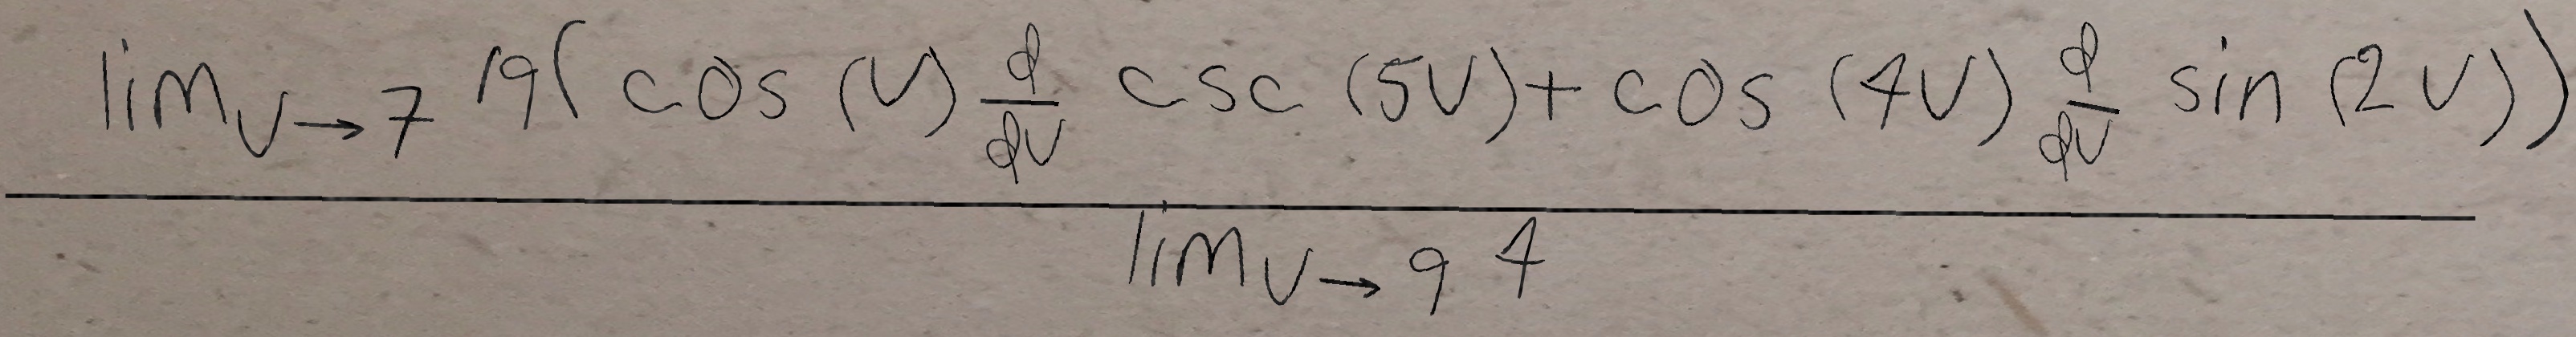 lim_{v→7} 19(cos(v) \frac{d}{dv} csc(5v) + cos(4v) \frac{d}{dv} sin(2v))
lim_{v→9} 4